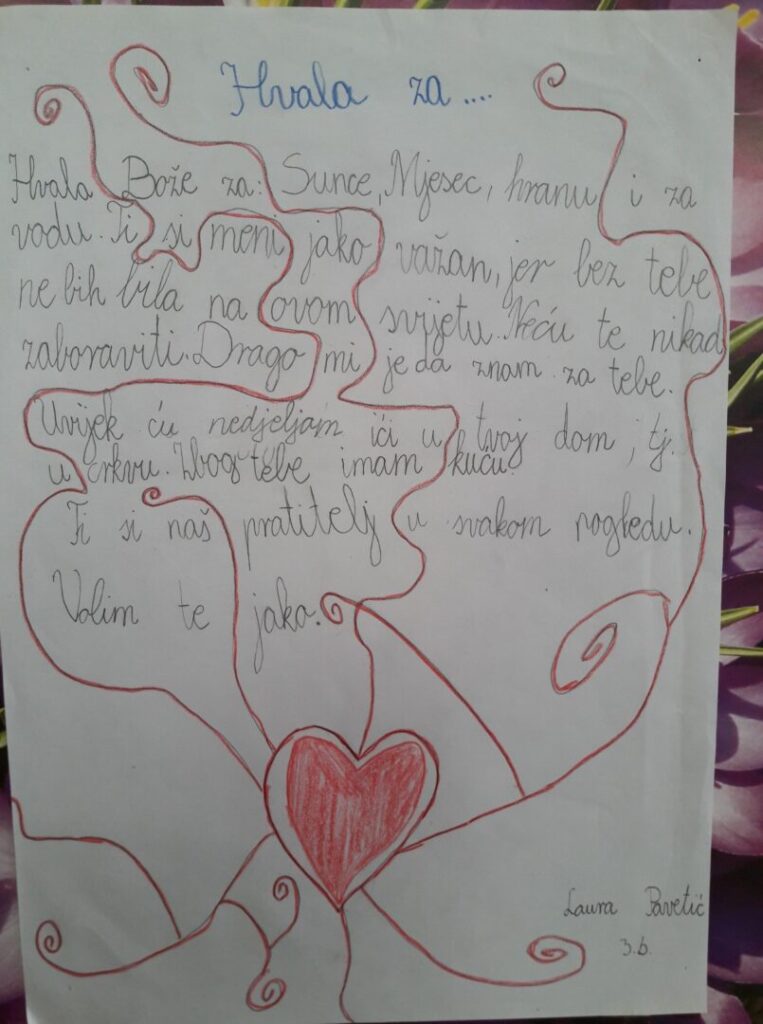 Hvala za....
Hvala Bože za: Sunce, Mjesec, hranu i za
vodu. Ti si meni jako važan, jer bez tebe
ne bih bila na ovom svijetu. Neću te nikad
zaboraviti. Drago mi je da znam za tebe.
Uvijek ću nedjeljam ići u tvoj dom, tj.
u crkvu. Zbog tebe imam kuću.
Ti si naš pratitelj u svakom pogledu.
Volim te jako.
Laura Pavetić
3.b.